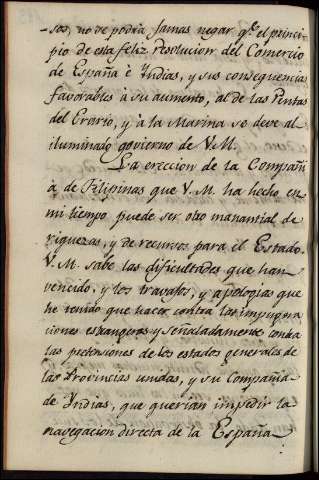 -sos, no se podrà Jamas negar q.e el princi-
pio de esta feliz resolucion del Comercio
de España è Yndias, y sus consequencias
favorables à su aumento, al de las Rentas
del Erario, y à la Marina se deve al
iluminado govierno de V.M.
La ereccion de la Compañi
à de Filipinas que V.M. ha hecho en
mi tiempo puede ser otro manantial de
riquezas, y de recursos para el Estado.
V.M. sabe las dificultades que han
vencido, y los travajos, y apologias que
he tenido que hacer contra las impugna
ciones estrangeras y señaladamente contra
las pretensiones de los estados generales de
las Provincias unidas, y su Compañia
de Yndias, que querian impedir la
navegacion directa de la España